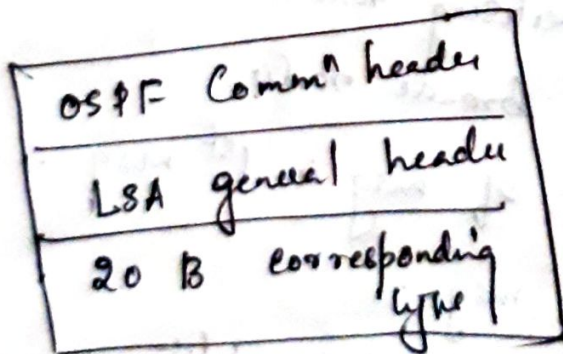 OSPF Commⁿ header
LSA general header
20 B corresponding
type